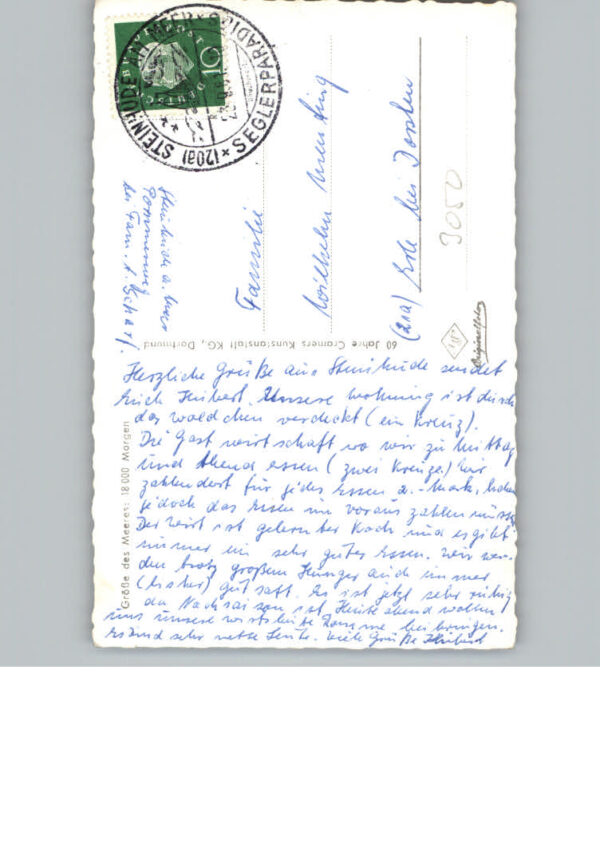 (20a) STEINHUDE AM MEER
SEGLERPARADIES
10
Steinhude a. Meer
bei Fam. A. Scharf.
Familie
Wilhelm
(21a) bei Dorsten
3050
60 Jahre Cramers Kunstanstalt KG., Dortmund
Originalfoto
Größe des Meeres: 18000 Morgen
Herzliche Grüße aus Steinhude sendet
Euch Hubert. Unsere Wohnung ist durch
das Wäldchen verdeckt (ein Kreuz).
Die Gastwirtschaft wo wir zu Mittag
und Abend essen (zwei Kreuze) wir
zahlen dort für jedes Essen 2.- Mark,
jedoch das Essen im voraus zahlen müssen.
Der Wirt ist gelernter Koch und es gibt
immer ein sehr gutes Essen. Wir wer-
den trotz großem Hunger auch immer
(bisher) gut satt. Es ist jetzt sehr ruhig
da Nachsaison ist. Heute abend wollen
uns unsere Wirtsleute beibringen.
Es sind sehr nette Leute. Viele Grüße Hubert